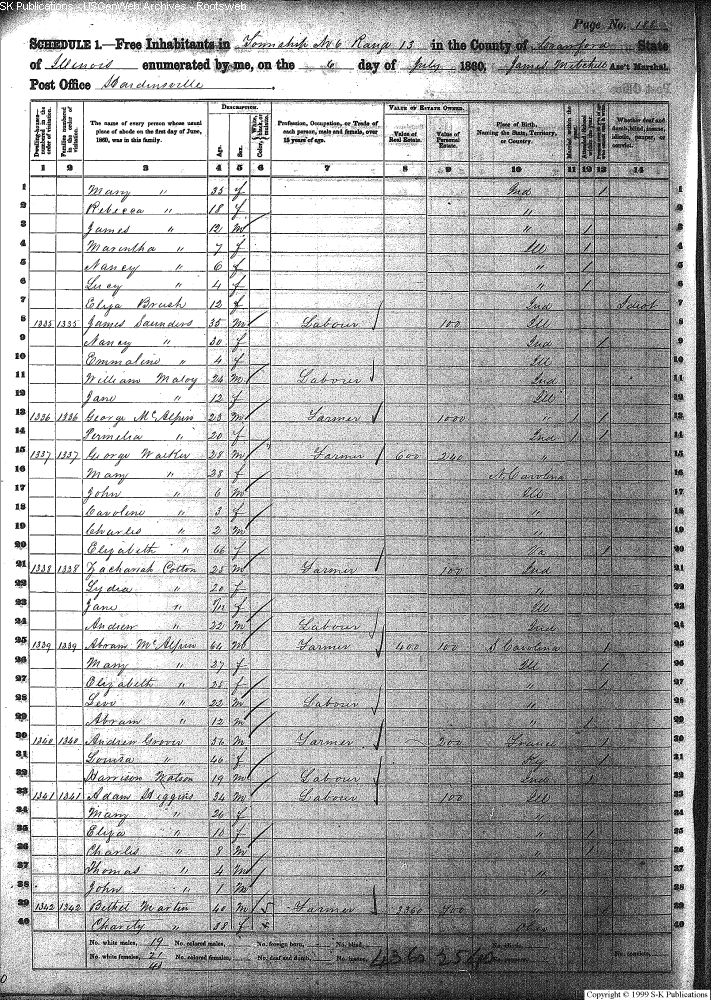 SK Publications - USGenWeb Archives - Rootsweb
Page No.
SCHEDULE 1.—Free Inhabitants in Township No 6 Rang 13 in the County of Crawford State
of Illinois enumerated by me, on the 6 day of July 1860, James Mitchell Ass't Marshal.
Post Office Hardinsville
DESCRIPTION. VALUE OF ESTATE OWNED.
Dwelling-houses—numbered in the order of visitation. Families numbered in the order of visitation. The name of every person whose usual place of abode on the first day of June, 1860, was in this family. Age. Sex. Color, Profession, Occupation, or Trade of each person, male and female, over 15 years of age. Value of Real Estate. Value of Personal Estate. Place of Birth, Naming the State, Territory, or Country. Whether deaf and dumb, blind, insane, idiotic, pauper, or convict.
1 2 3 4 5 6 7 8 9 10 11 12 13 14
1 Mary " 35 f Ind 1 1
2 Rebecca " 18 f " 2
3 James " 12 m " 1 3
4 Marintha " 7 f Ill 1 4
5 Nancy " 6 f " 1 5
6 Lucy " 4 f " 1 6
7 Eliza Brush 12 f Ind Idiot 7
8 1335 1335 James Saunders 35 m Labour 100 Ill 8
9 Nancy " 30 f Ind 1 9
10 Emmaline " 4 f Ill 10
11 William Maloy 24 m Labour Ind 11
12 Jane " 12 f Ill 12
13 1336 1336 George McAlpin 23 m Farmer 1000 " 1 13
14 Permelia " 20 f Ind 1 1 14
15 1337 1337 George Walker 28 m Farmer 600 240 " 15
16 Mary " 28 f N Carolina 16
17 John " 6 m Ill 17
18 Caroline " 3 f " 18
19 Charles " 2 m " 19
20 Elizabeth " 66 f Va 1 20
21 1338 1338 Zachariah Cotton 25 m Farmer 100 Ind 21
22 Lydia " 20 f " 22
23 Jane " f Ill 23
24 Andrew " 22 m Labour Ind 24
25 1339 1339 Abram McAlpin 64 m Farmer 400 100 S Carolina 1 25
26 Mary " 27 f Ill 1 26
27 Elizabeth " 25 f " 1 27
28 Levi " 22 m Labour " 28
29 Abram " 12 m " 1 29
30 1340 1340 Andrew Groves 56 m Farmer 200 France 30
31 Louisa " 46 f Ky 1 31
32 Harrison Watson 19 m Labour Ind 1 32
33 1341 1341 Adam Higgins 34 m Labour 100 Ill 33
34 Mary " 26 f " 34
35 Eliza " 10 f " 1 35
36 Charles " 8 m " 1 36
37 Thomas " 4 m " 37
38 John " 1 m " 38
39 1342 1342 Bethel Martin 40 m Farmer 3360 700 " 39
40 Charity " 38 f Ohio 40
No. white males, 19 No. colored males, No. foreign born, No. blind,
No. white females, 21 No. colored females, No. deaf and dumb, No. insane, 4360 2540 No. convicts,
40
Copyright © 1999 S-K Publications